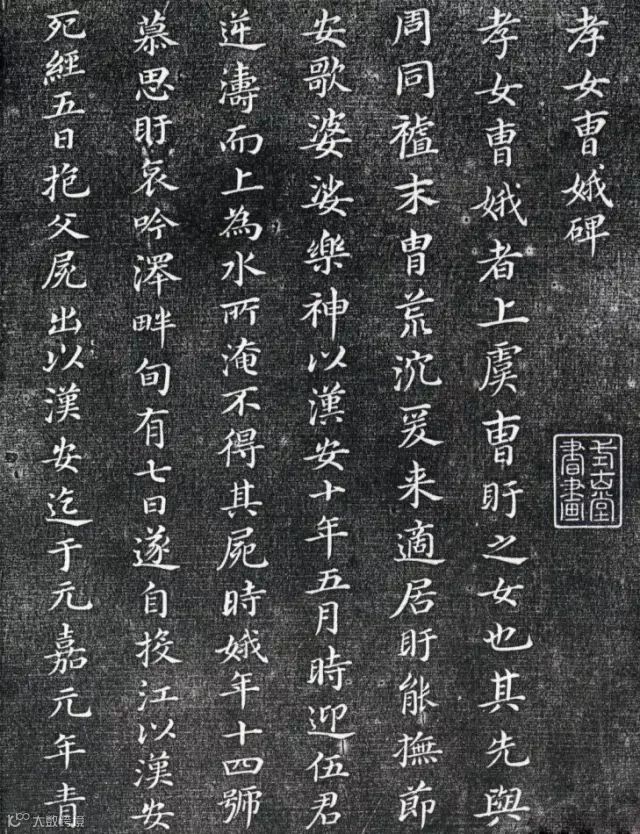 孝女曹娥碑
孝女曹娥者上虞曹盱之女也其先與
周同褷末胄荒沉爰来適居盱能撫節
安歌婆娑樂神以漢安十年五月時迎伍君
逆濤而上為水所淹不得其屍時娥年十四號
慕思盱哀吟澤畔旬有七日遂自投江以漢安
死經五日抱父屍出以漢安迄于元嘉元年青
書畫
大数跨境